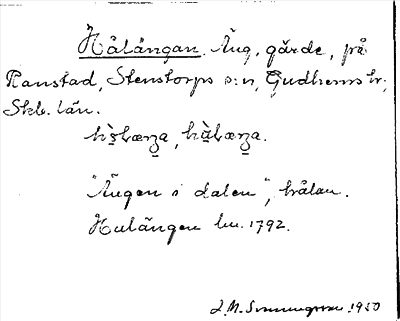 Hålängan. Äng, gärde, på
Ranstad, Stenstorps s:n, Gudhems hr;
Skb. län.
"Ängen i dalen", hålan.
Hulängen lm. 1792.
1950